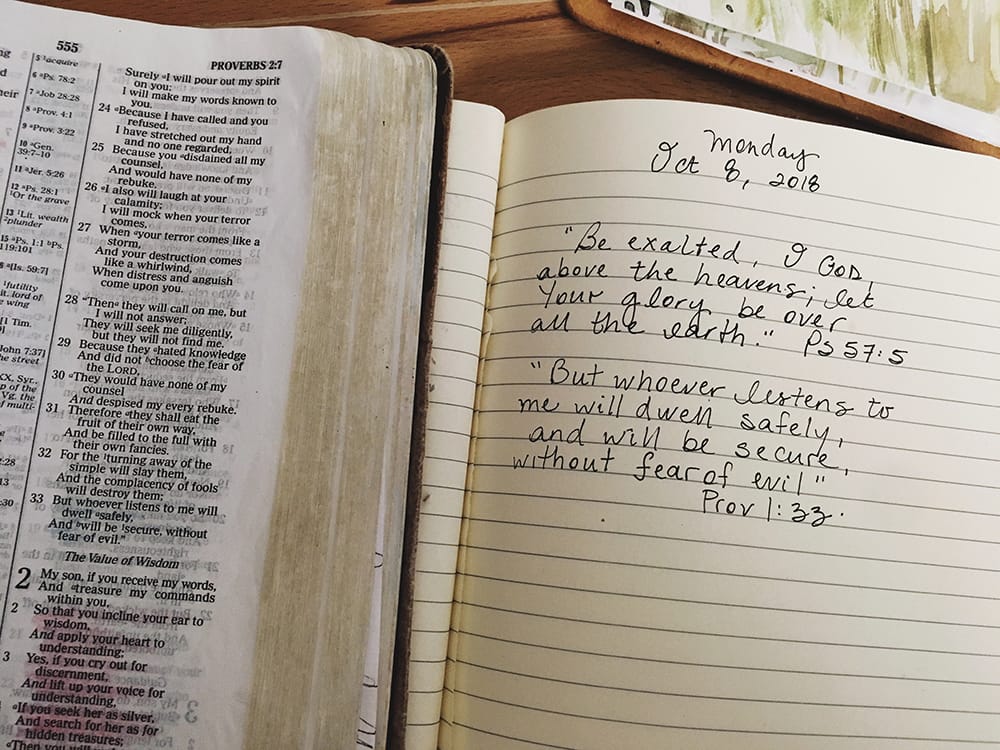 555
PROVERBS 2:7
5 ¹acquire
6 ᵃPs. 78:2
7 ᵃJob 28:28
8 ᵃProv. 4:1
9 ᵃProv. 3:22
10 ᵃGen.
39:7–10
11 ᵃJer. 5:26
12 ᵃPs. 28:1
¹Or the grave
13 ¹Lit. wealth
²plunder
15 ᵃPs. 1:1 ᵇPs.
119:101
ᵃ[Is. 59:7]
¹futility
lord of
wing
Tim.
John 7:37]
street
Surely ᵃI will pour out my spirit
on you;
I will make my words known to
you.
24 ᵃBecause I have called and you
refused,
I have stretched out my hand
and no one regarded,
25 Because you ᵃdisdained all my
counsel,
And would have none of my
rebuke,
26 ᵃI also will laugh at your
calamity;
I will mock when your terror
comes,
27 When ᵃyour terror comes like a
storm,
And your destruction comes
like a whirlwind,
When distress and anguish
come upon you.
28 "Thenᵃ they will call on me, but
I will not answer;
They will seek me diligently,
but they will not find me.
29 Because they ᵃhated knowledge
And did not ᵇchoose the fear of
the LORD,
30 ᵃThey would have none of my
counsel
And despised my every rebuke.
31 Therefore ᵃthey shall eat the
fruit of their own way,
And be filled to the full with
their own fancies.
32 For the ¹turning away of the
simple will slay them,
And the complacency of fools
will destroy them;
33 But whoever listens to me will
dwell ᵃsafely,
And ᵇwill be ¹secure, without
fear of evil."
The Value of Wisdom
2 My son, if you receive my words,
And ᵃtreasure my commands
within you,
2 So that you incline your ear to
wisdom,
And apply your heart to
understanding;
3 Yes, if you cry out for
discernment,
And lift up your voice for
understanding,
ᵃIf you seek her as silver,
And search for her as for
hidden treasures;
ᵃThen you will
Monday
Oct 8, 2018
"Be exalted, O God,
above the heavens; let
Your glory be over
all the earth." Ps 57:5
"But whoever listens to
me will dwell safely,
and will be secure,
without fear of evil"
Prov 1:33.